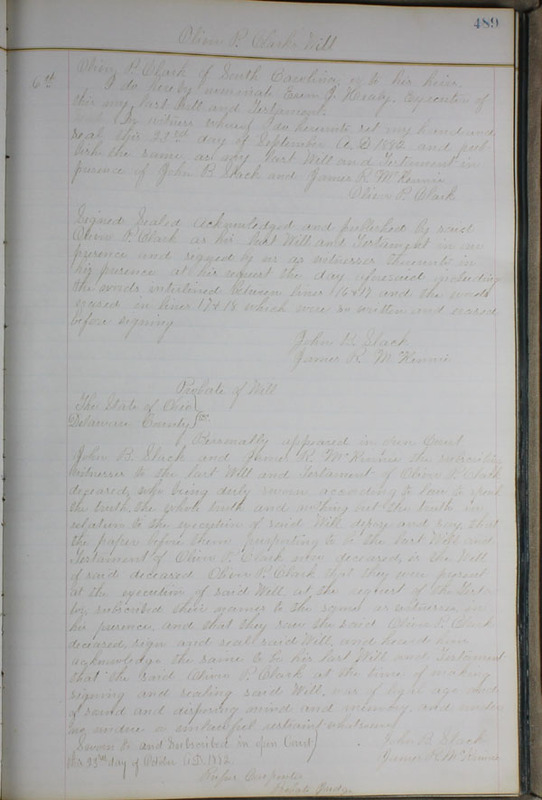 489
Oliver P. Clark's Will
Oliver P. Clark of South Carolina, or to his heirs.
6th I do hereby nominate Eron J. Healy, Executor of
this my last Will and Testament.
In witness whereof I do hereunto set my hand and
seal this 23rd day of September A.D. 1892 and pub-
lish the same as my last Will and Testament in
presence of John B. Slack and James R. McKinnie
Oliver P. Clark
Signed Sealed Acknowledged and published by said
Oliver P. Clark as his last Will and Testament in our
presence and signed by us as witnesses thereunto in
his presence at his request the day aforesaid including
the words interlined between lines 16 & 17 and the words
erased in lines 17 & 18 which were so written and erased
before signing
John B. Slack
James R. McKinnie
Probate of Will
The State of Ohio
Delaware County ss.
Personally appeared in open Court
John B. Slack and James R. McKinnie the subscribing
witnesses to the last Will and Testament of Oliver P. Clark
deceased, who being duly sworn according to law to speak
the truth, the whole truth and nothing but the truth in
relation to the execution of said Will depose and say, that
the paper before them purporting to be the last Will and
Testament of Oliver P. Clark now deceased, is the Will
of said deceased Oliver P. Clark that they were present
at the execution of said Will, at the request of the Testa-
tor, subscribed their names to the same as witnesses, in
his presence, and that they saw the said Oliver P. Clark
deceased, sign and seal said Will, and heard him
acknowledge the same to be his last Will and Testament
that the said Oliver P. Clark at the time of making
signing and sealing said Will, was of legal age and
of sound and disposing mind and memory, and under
no undue or unlawful restraint whatsoever
Sworn to and Subscribed in open Court
this 23rd day of October A.D. 1892
John B. Slack
James R. McKinnie
Rufus Carpenter
Probate Judge